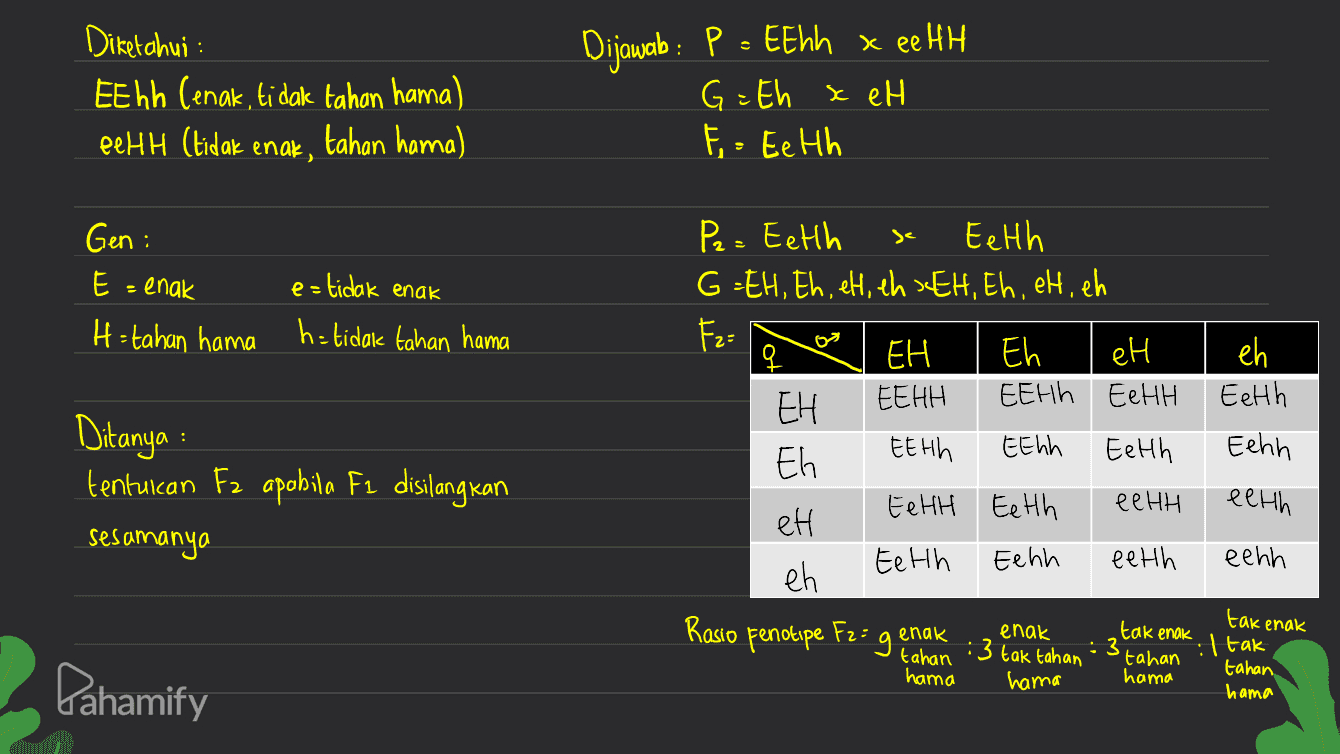 Diketahui :
EEhh (enak, tidak tahan hama)
eeHH (tidak enak, tahan hama)
Gen :
E = enak e = tidak enak
H = tahan hama h = tidak tahan hama
Ditanya :
tentukan F2 apabila F1 disilangkan
sesamanya
Dijawab : P = EEhh x eeHH
G = Eh x eH
F1 = EeHh
P2 = EeHh x EeHh
G = EH, Eh, eH, eh x EH, Eh, eH, eh
F2=
♀ ♂ EH Eh eH eh
EH EEHH EEHh EeHH EeHh
Eh EEHh EEhh EeHh Eehh
eH EeHH EeHh eeHH eeHh
eh EeHh Eehh eeHh eehh
Rasio fenotipe F2 = 9 enak tahan hama : 3 enak tak tahan hama : 3 tak enak tahan hama : 1 tak enak tak tahan hama
Pahamify